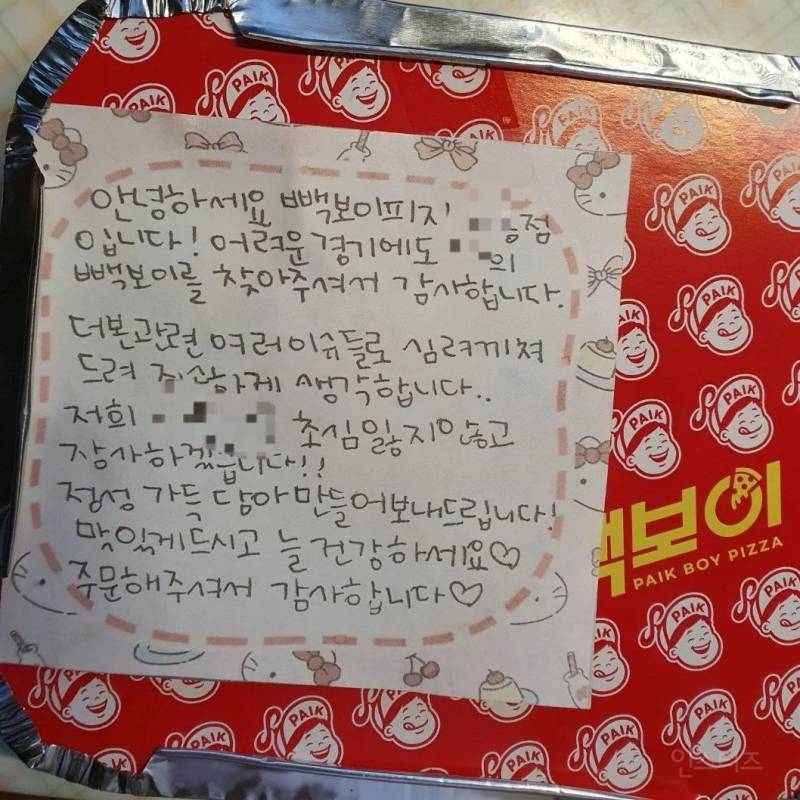 안녕하세요 빽보이피자 점
입니다! 어려운 경기에도 의
빽보이를 찾아주셔서 감사합니다.
더본관련 여러이슈들로 심려끼쳐
드려 죄송하게 생각합니다..
저희 초심잃지않고
장사하겠습니다!!
정성 가득 담아 만들어보내드립니다!
맛있게드시고 늘 건강하세요♡
주문해주셔서 감사합니다♡
빽보이
PAIK BOY PIZZA
PAIK